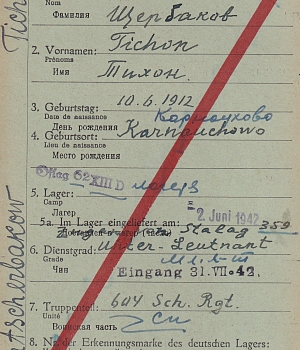 Фамилия Щербаков
2. Vornamen: Tichon
Prénoms
Имя Тихон.
3. Geburtstag: 10.6.1912
Date de naissance
День рождения Карначуково
4. Geburtsort: Karnauchowo
Lieu de naissance
Место рождения
Oflag 62 XIII D лагерь
5. Lager:
Camp
Лагерь
2. Juni 1942
5a. Im Lager eingeliefert am:
Stalag 359
6. Dienstgrad: Unter-Leutnant
Grade
Чин Eingang 31.VII.42.
7. Truppenteil: 604 Sch. Rgt.
Unité
Воинская часть
8. Nr. der Erkennungsmarke des deutschen Lagers:
Tich
tscherbakow